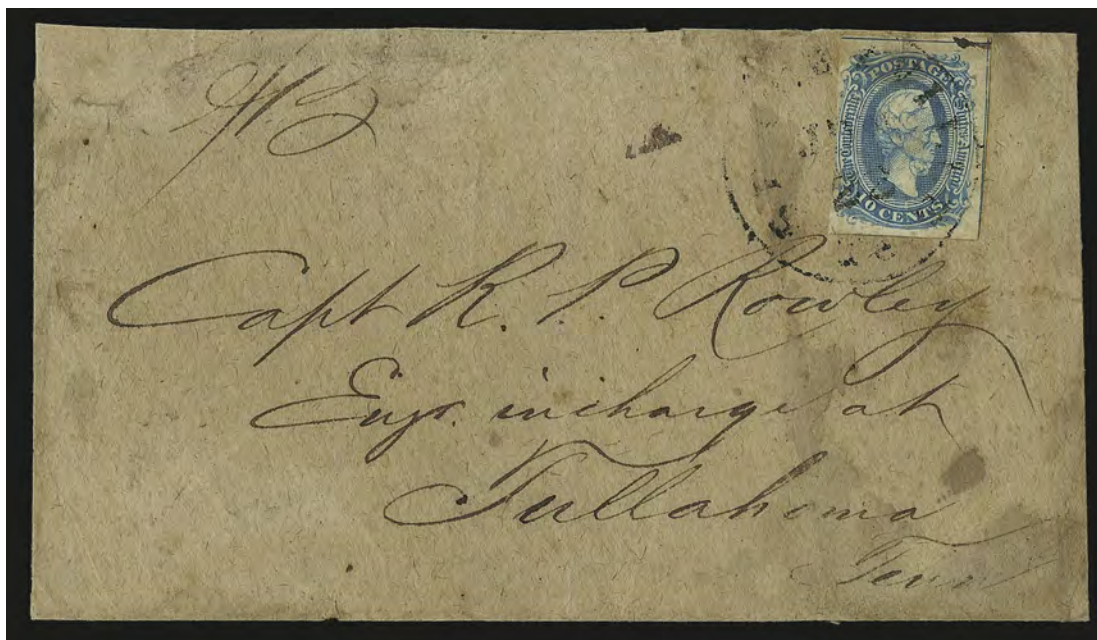 POSTAGE
The Confederate States of America
10 CENTS
Capt R. P. Rowley
Engr. in charge at
Tullahoma
Tenn